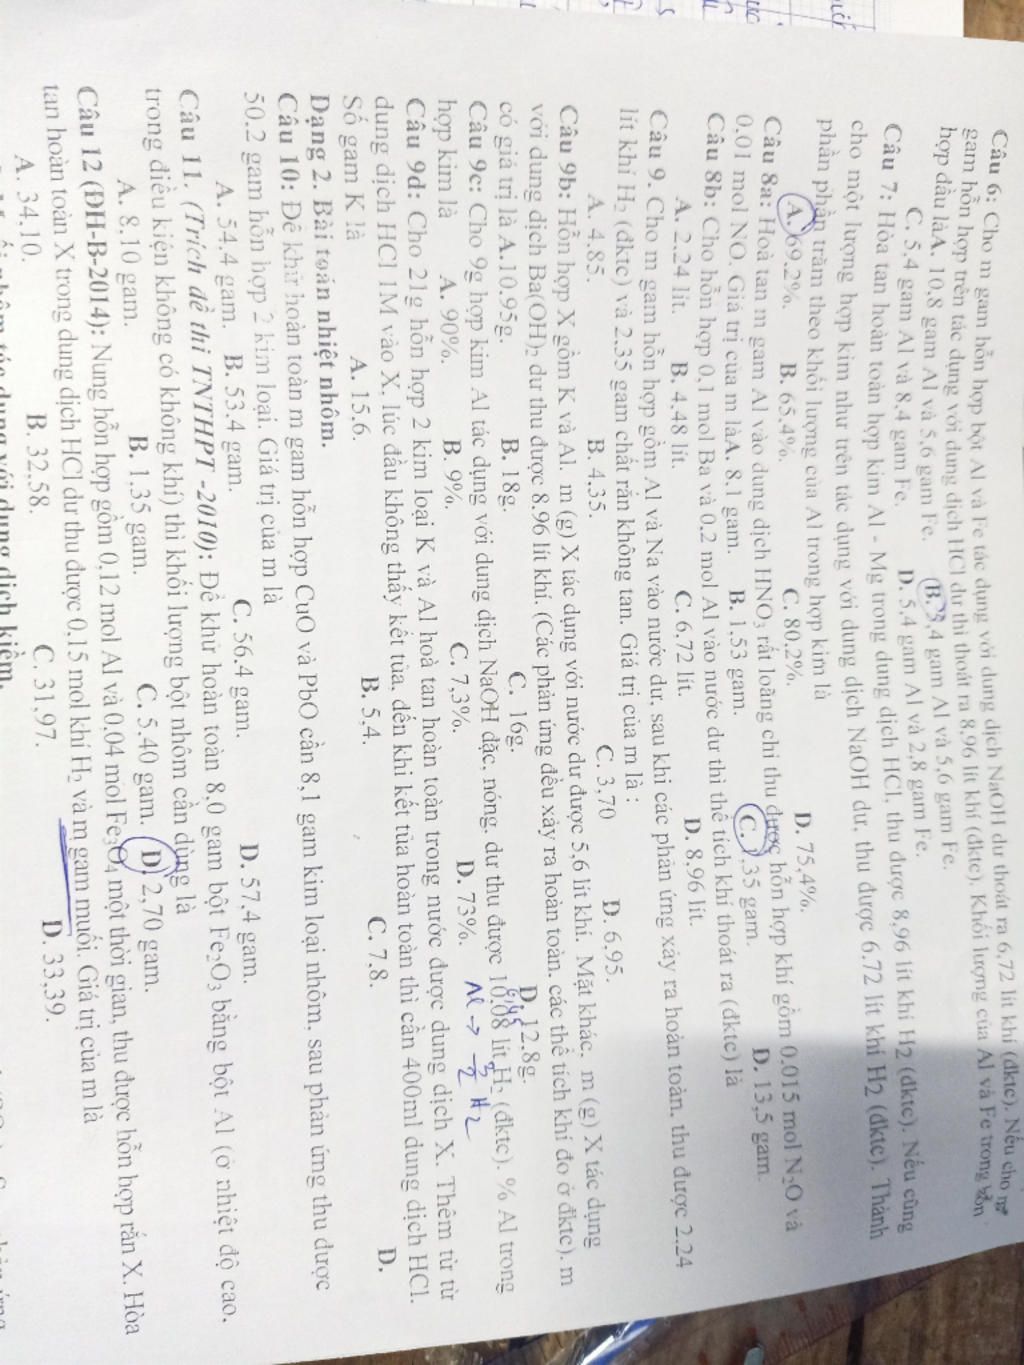 Câu 6: Cho m gam hỗn hợp bột Al và Fe tác dụng với dung dịch NaOH dư thoát ra 6,72 lít khí (đktc). Nếu cho m
gam hỗn hợp trên tác dụng với dung dịch HCl dư thì thoát ra 8,96 lít khí (đktc). Khối lượng của Al và Fe trong hỗn
hợp đầu làA. 10,8 gam Al và 5,6 gam Fe. B. 5,4 gam Al và 5,6 gam Fe.
C. 5,4 gam Al và 8,4 gam Fe. D. 5,4 gam Al và 2,8 gam Fe.
Câu 7: Hòa tan hoàn toàn hợp kim Al - Mg trong dung dịch HCl, thu được 8,96 lít khí H2 (đktc). Nếu cũng
cho một lượng hợp kim như trên tác dụng với dung dịch NaOH dư, thu được 6,72 lít khí H2 (đktc). Thành
phần phần trăm theo khối lượng của Al trong hợp kim là
A. 69,2%. B. 65,4%. C. 80,2%. D. 75,4%.
Câu 8a: Hoà tan m gam Al vào dung dịch HNO₃ rất loãng chỉ thu được hỗn hợp khí gồm 0,015 mol N₂O và
0,01 mol NO. Giá trị của m làA. 8,1 gam. B. 1,53 gam. C. 1,35 gam. D. 13,5 gam.
Câu 8b: Cho hỗn hợp 0,1 mol Ba và 0,2 mol Al vào nước dư thì thể tích khí thoát ra (đktc) là
A. 2,24 lít. B. 4,48 lít. C. 6,72 lít. D. 8,96 lít.
Câu 9. Cho m gam hỗn hợp gồm Al và Na vào nước dư, sau khi các phản ứng xảy ra hoàn toàn, thu được 2,24
lít khí H₂ (đktc) và 2,35 gam chất rắn không tan. Giá trị của m là :
A. 4,85. B. 4,35. C. 3,70 D. 6,95.
Câu 9b: Hỗn hợp X gồm K và Al. m (g) X tác dụng với nước dư được 5,6 lít khí. Mặt khác, m (g) X tác dụng
với dung dịch Ba(OH)₂ dư thu được 8,96 lít khí. (Các phản ứng đều xảy ra hoàn toàn, các thể tích khí đo ở đktc). m
có giá trị là A.10,95g. B. 18g. C. 16g. D. 12,8g.
Câu 9c: Cho 9g hợp kim Al tác dụng với dung dịch NaOH đặc, nóng, dư thu được 10,08 lít H₂ (đktc). % Al trong
hợp kim là A. 90%. B. 9%. C. 7,3%. D. 73%. Al → 3/2 H2
Câu 9d: Cho 21g hỗn hợp 2 kim loại K và Al hoà tan hoàn toàn trong nước được dung dịch X. Thêm từ từ
dung dịch HCl 1M vào X, lúc đầu không thấy kết tủa, đến khi kết tủa hoàn toàn thì cần 400ml dung dịch HCl.
Số gam K là A. 15,6. B. 5,4. C. 7,8. D.
Dạng 2. Bài toán nhiệt nhôm.
Câu 10: Để khử hoàn toàn m gam hỗn hợp CuO và PbO cần 8,1 gam kim loại nhôm, sau phản ứng thu được
50,2 gam hỗn hợp 2 kim loại. Giá trị của m là
A. 54,4 gam. B. 53,4 gam. C. 56,4 gam. D. 57,4 gam.
Câu 11. (Trích đề thi TNTHPT -2010): Để khử hoàn toàn 8,0 gam bột Fe₂O₃ bằng bột Al (ở nhiệt độ cao,
trong điều kiện không có không khí) thì khối lượng bột nhôm cần dùng là
A. 8,10 gam. B. 1,35 gam. C. 5,40 gam. D. 2,70 gam.
Câu 12 (ĐH-B-2014): Nung hỗn hợp gồm 0,12 mol Al và 0,04 mol Fe₃O₄ một thời gian, thu được hỗn hợp rắn X. Hòa
tan hoàn toàn X trong dung dịch HCl dư thu được 0,15 mol khí H₂ và m gam muối. Giá trị của m là
A. 34,10. B. 32,58. C. 31,97. D. 33,39.
tác dụng với dung dịch kiềm.